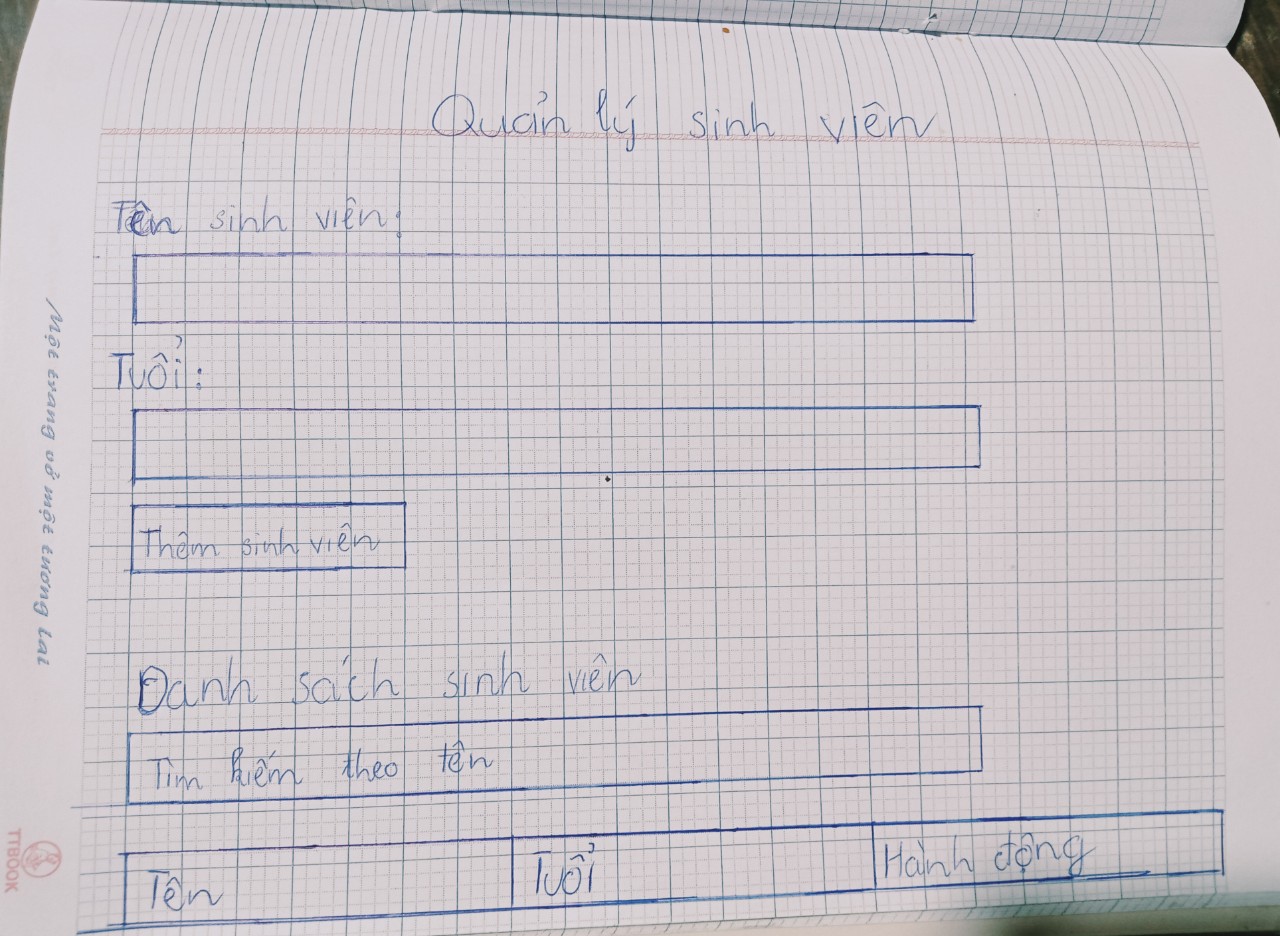 Quản lý sinh viên
Tên sinh viên:
Tuổi:
Thêm sinh viên
Danh sách sinh viên
Tìm kiếm theo tên
Tên Tuổi Hành động
Một trang vở một tương lai
TTBOOK